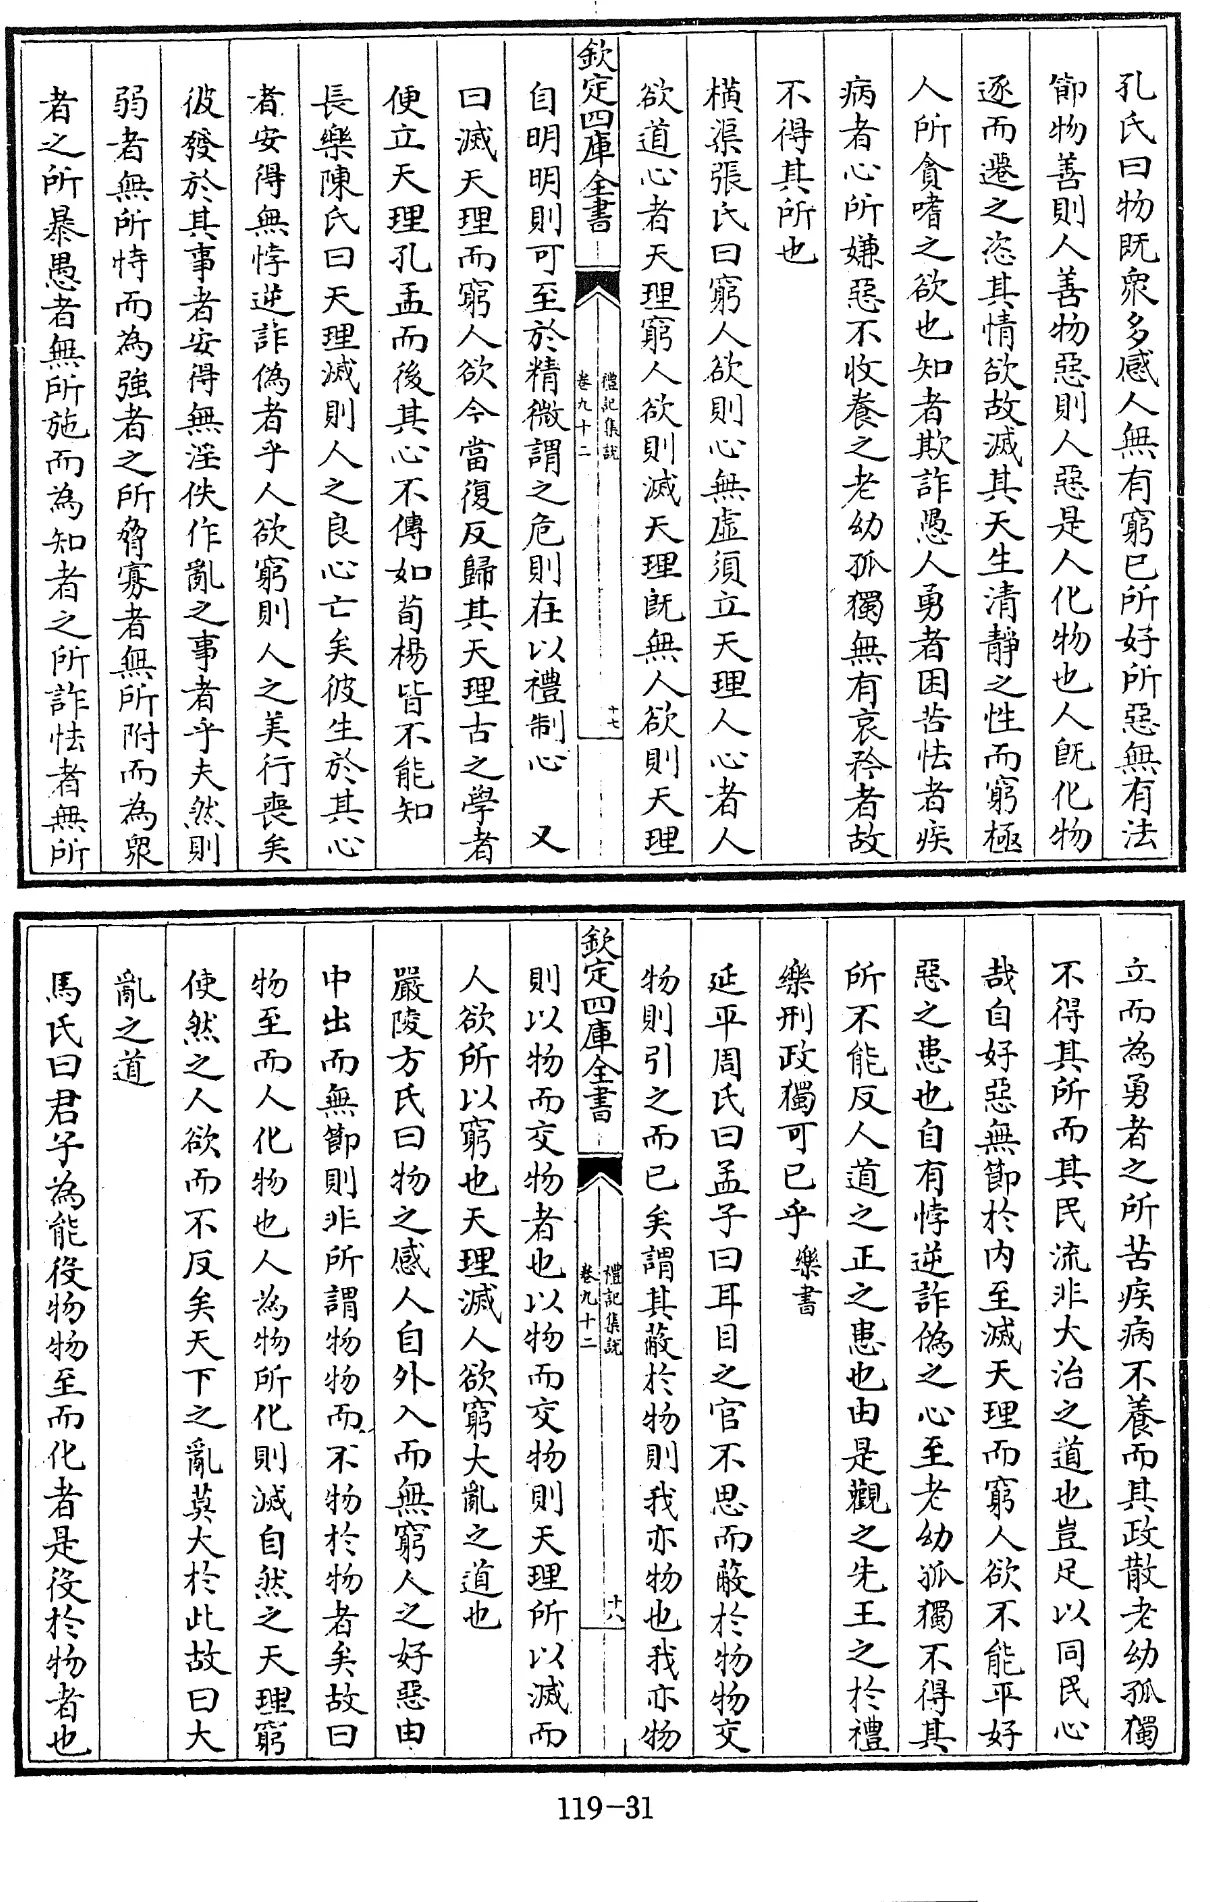 孔氏曰物既衆多感人無有窮已所好所惡無有法
節物善則人善物惡則人惡是人化物也人既化物
逐而遷之恣其情欲故滅其天生清靜之性而窮極
人所貪嗜之欲也知者欺詐愚人勇者困苦怯者疾
病者心所嫌惡不收養之老幼孤獨無有哀矜者故
不得其所也
橫渠張氏曰窮人欲則心無虛須立天理人心者人
欲道心者天理窮人欲則滅天理既無人欲則天理
欽定四庫全書
禮記集說
卷九十二
十七
自明明則可至於精微謂之危則在以禮制心 又
曰滅天理而窮人欲今當復反歸其天理古之學者
便立天理孔孟而後其心不傳如荀楊皆不能知
長樂陳氏曰天理滅則人之良心亡矣彼生於其心
者安得無悖逆詐偽者乎人欲窮則人之美行喪矣
彼發於其事者安得無淫佚作亂之事者乎夫然則
弱者無所恃而為強者之所脅寡者無所附而為衆
者之所暴愚者無所施而為知者之所詐怯者無所
立而為勇者之所苦疾病不養而其政散老幼孤獨
不得其所而其民流非大治之道也豈足以同民心
哉自好惡無節於內至滅天理而窮人欲不能平好
惡之患也自有悖逆詐偽之心至老幼孤獨不得其
所不能反人道之正之患也由是觀之先王之於禮
樂刑政獨可已乎樂書
延平周氏曰孟子曰耳目之官不思而蔽於物物交
物則引之而已矣謂其蔽於物則我亦物也我亦物
欽定四庫全書
禮記集說
卷九十二
十八
則以物而交物者也以物而交物則天理所以滅而
人欲所以窮也天理滅人欲窮大亂之道也
嚴陵方氏曰物之感人自外入而無窮人之好惡由
中出而無節則非所謂物物而不物於物者矣故曰
物至而人化物也人為物所化則滅自然之天理窮
使然之人欲而不反矣天下之亂莫大於此故曰大
亂之道
馬氏曰君子為能役物物至而化者是役於物者也
119-31